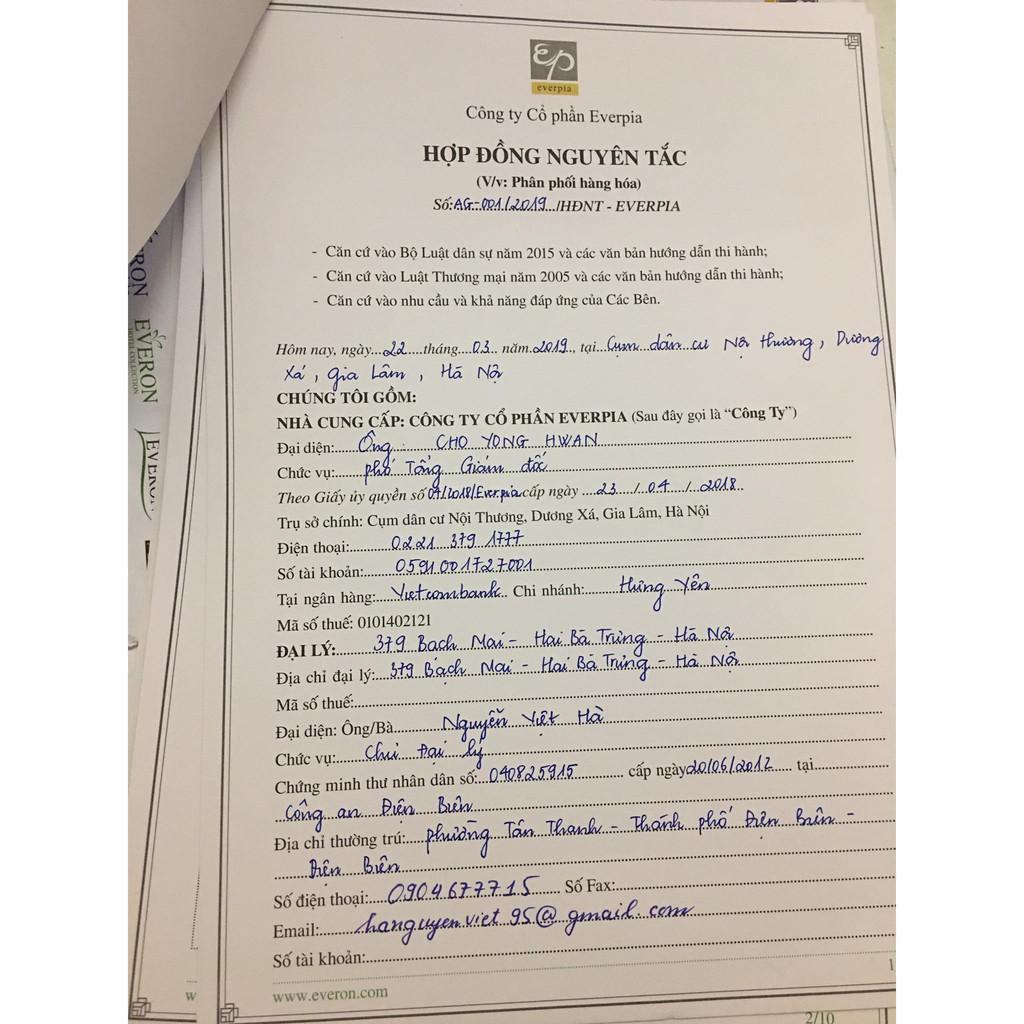 everpia
Công ty Cổ phần Everpia
HỢP ĐỒNG NGUYÊN TẮC
(V/v: Phân phối hàng hóa)
Số:AG-001/2019../HĐNT - EVERPIA
- Căn cứ vào Bộ Luật dân sự năm 2015 và các văn bản hướng dẫn thi hành;
- Căn cứ vào Luật Thương mại năm 2005 và các văn bản hướng dẫn thi hành;
- Căn cứ vào nhu cầu và khả năng đáp ứng của Các Bên.
Hôm nay, ngày...22....tháng...03.. năm.2019., tại...Cụm dân cư Nội thương, Dương
Xá, Gia Lâm, Hà Nội
CHÚNG TÔI GỒM:
NHÀ CUNG CẤP: CÔNG TY CỔ PHẦN EVERPIA (Sau đây gọi là “Công Ty”)
Đại diện:......Ông CHO YONG HWAN
Chức vụ:......phó Tổng Giám đốc
Theo Giấy ủy quyền số 04/2018/Everpia cấp ngày ....23..../..04.../...2018..
Trụ sở chính: Cụm dân cư Nội Thương, Dương Xá, Gia Lâm, Hà Nội
Điện thoại:......0221 379 1777
Số tài khoản:......0591001727001
Tại ngân hàng:....Vietcombank.. Chi nhánh:........Hưng Yên
Mã số thuế: 0101402121
ĐẠI LÝ:......379 Bạch Mai - Hai Bà Trưng - Hà Nội
Địa chỉ đại lý:...379 Bạch Mai - Hai Bà Trưng - Hà Nội
Mã số thuế:
Đại diện: Ông/Bà.........Nguyễn Việt Hà
Chức vụ:......Chủ Đại lý
Chứng minh thư nhân dân số:..040825915........... cấp ngày20/06/2012..... tại
Công an Điện Biên
Địa chỉ thường trú:...phường Tân Thanh - Thành phố Điện Biên -
Điện Biên
Số điện thoại:....0904677715..... Số Fax:
Email:........hanguyenviet95@gmail.com
Số tài khoản:
1
www.everon.com
2/10
w
RON
EVERON
HOTEL COLLECTION
EVERON